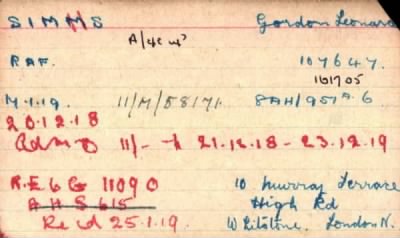 SIMMS Gordon Leonard
A/4c
RAF. 107647.
101705
M.1.19. 11/M/58171. 8AH/957A.6
20.12.18
11/- 21.12.18 - 23.12.19
R.E 6 G 11090 10. Murray Terrace
A H S 615 High Rd
Re cd 25.1.19. London N.